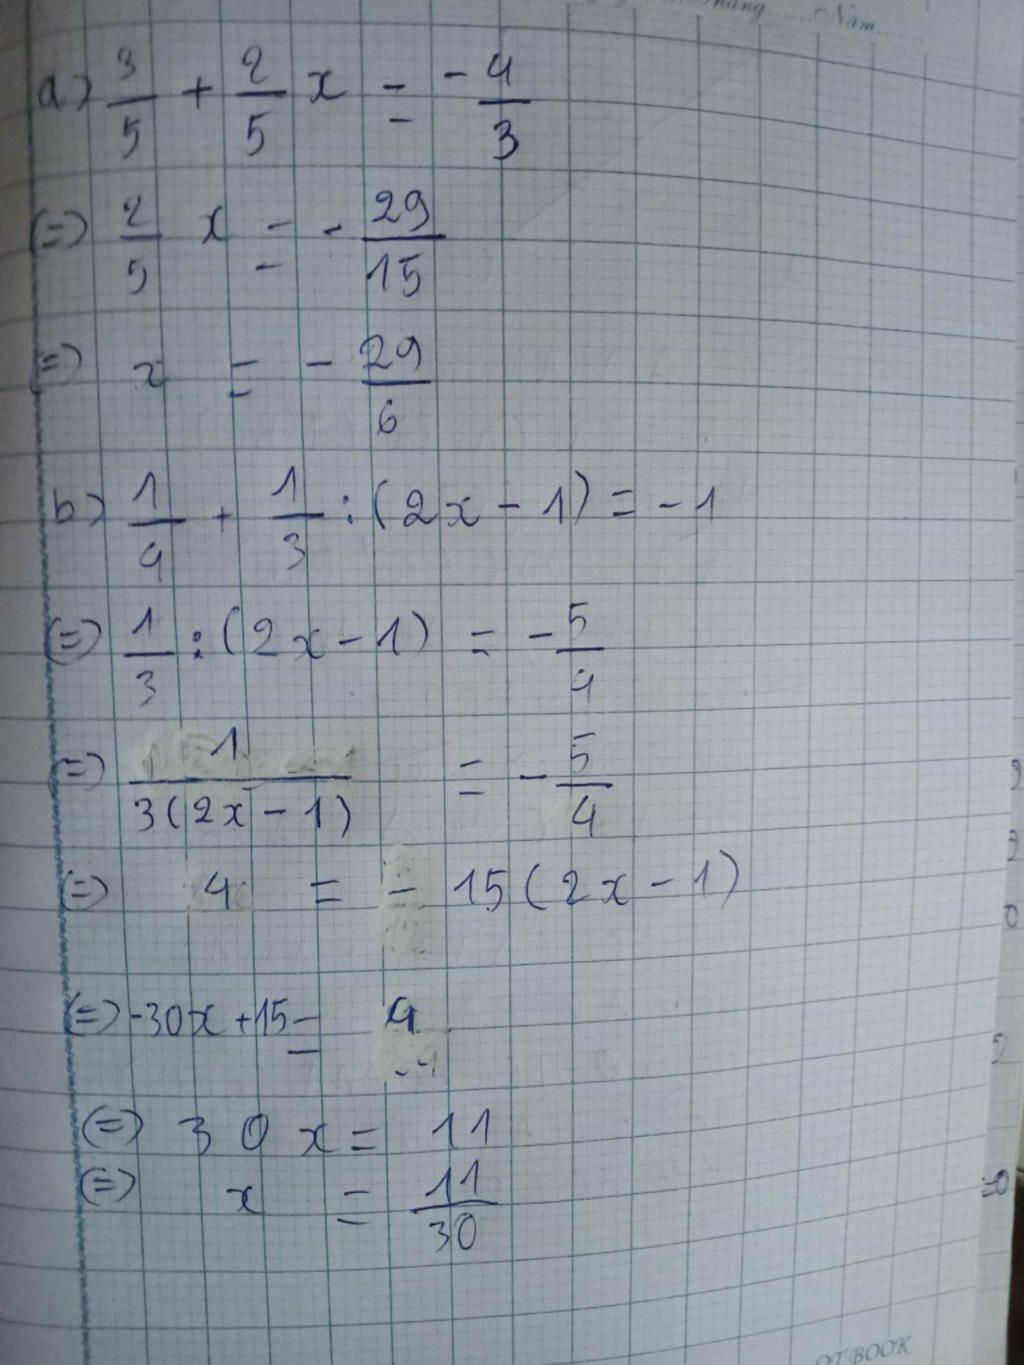 Tháng......Năm......
a) 3/5 + 2/5 x = - 4/3
(=) 2/5 x = - 29/15
(=) x = - 29/6
b) 1/4 + 1/3 : (2x - 1) = - 1
(=) 1/3 : (2x - 1) = - 5/4
(=) 1/3(2x - 1) = - 5/4
(=) 4 = - 15(2x - 1)
(=) -30x + 15 = 4
(=) 30x = 11
(=) x = 11/30
OT BOOK